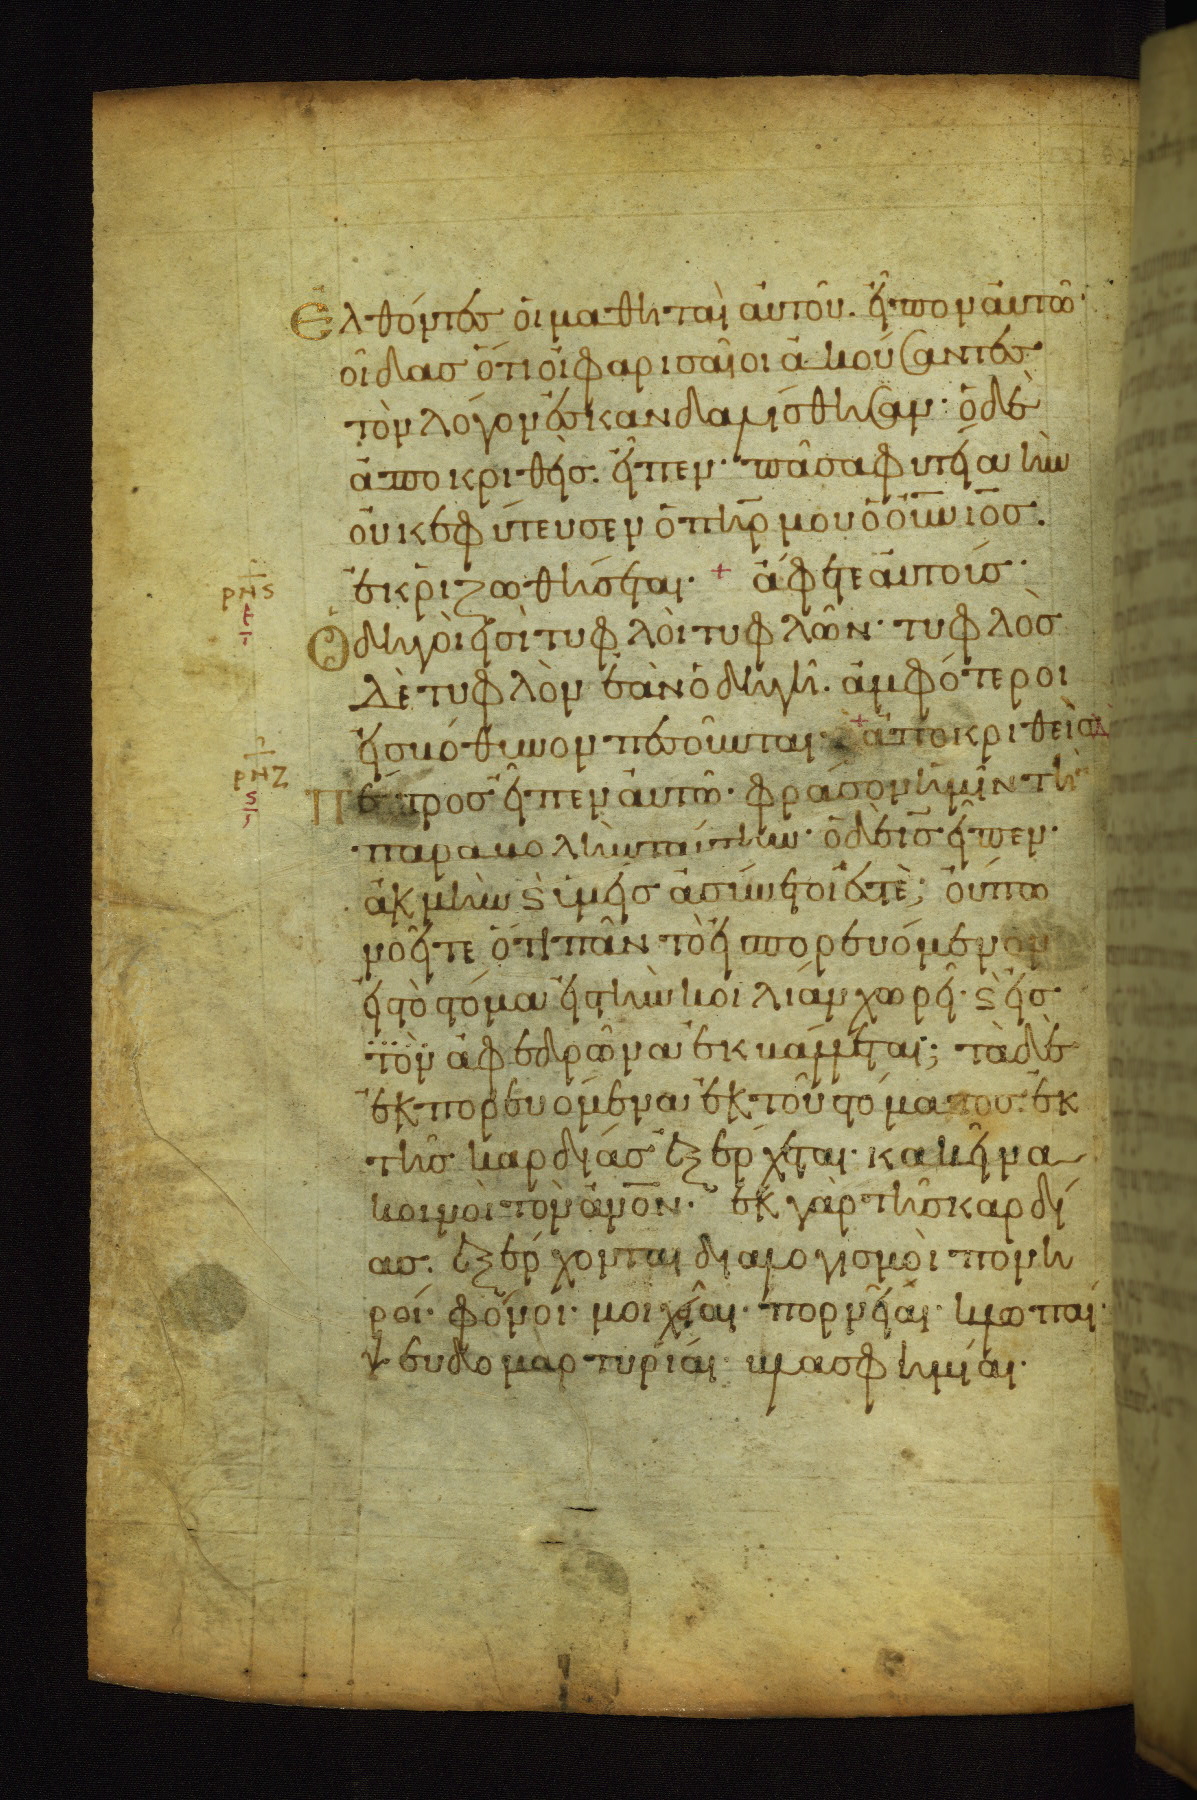 Ἐλθόντες οἱ μαθηταὶ αὐτοῦ. εἶπον αὐτῶ·
οἶδας ὅτι οἱ φαρισαῖοι ἀκούσαντες
τὸν λόγον ἐσκανδαλίσθησαν· ὁ δὲ
ἀποκριθεὶς. εἶπεν· πᾶσα φυτεία ἣν
οὐκ ἐφύτευσεν ὁ πηρ μου ὁ οὐνιος.
ἐκριζωθήσεται· + ἄφετε αὐτούς·
Ὁδηγοὶ εἰσὶ τυφλοὶ τυφλῶν· τυφλὸς
δὲ τυφλὸν ἐὰν ὁδηγῆ. ἀμφότεροι
εἰς βόθυνον πεσοῦνται· + ἀποκριθεὶς δὲ
Πέτρος εἶπεν αὐτῶ· φράσον ἡμῖν τὴν
παραβολὴν ταύτην· ὁ δὲ ις εἶπεν·
ἀκμὴν ϗ ὑμεῖς ἀσύνετοί ἐστὲ; οὔπω
νοεῖτε ὅτι πᾶν τὸ εἰσπορευόμενον
εἰς τὸ στόμα εἰς τὴν κοιλίαν χωρεῖ· ϗ εἰς
τὸν ἀφεδρῶνα ἐκβάλλεται; τὰ δὲ
ἐκπορευόμενα ἐκ τοῦ στόματος. ἐκ
τῆς καρδίας ἐξέρχεται· κακεῖνα
κοινοὶ τὸν ἀνον. ἐκ γὰρ τῆς καρδί
ας. ἐξέρχονται διαλογισμοὶ πονη
ροί· φόνοι· μοιχεῖαι· πορνεῖαι· κλοπαί·
ψευδομαρτυρίαι· βλασφημίαι·
ρνς
ι
ρνζ
ς